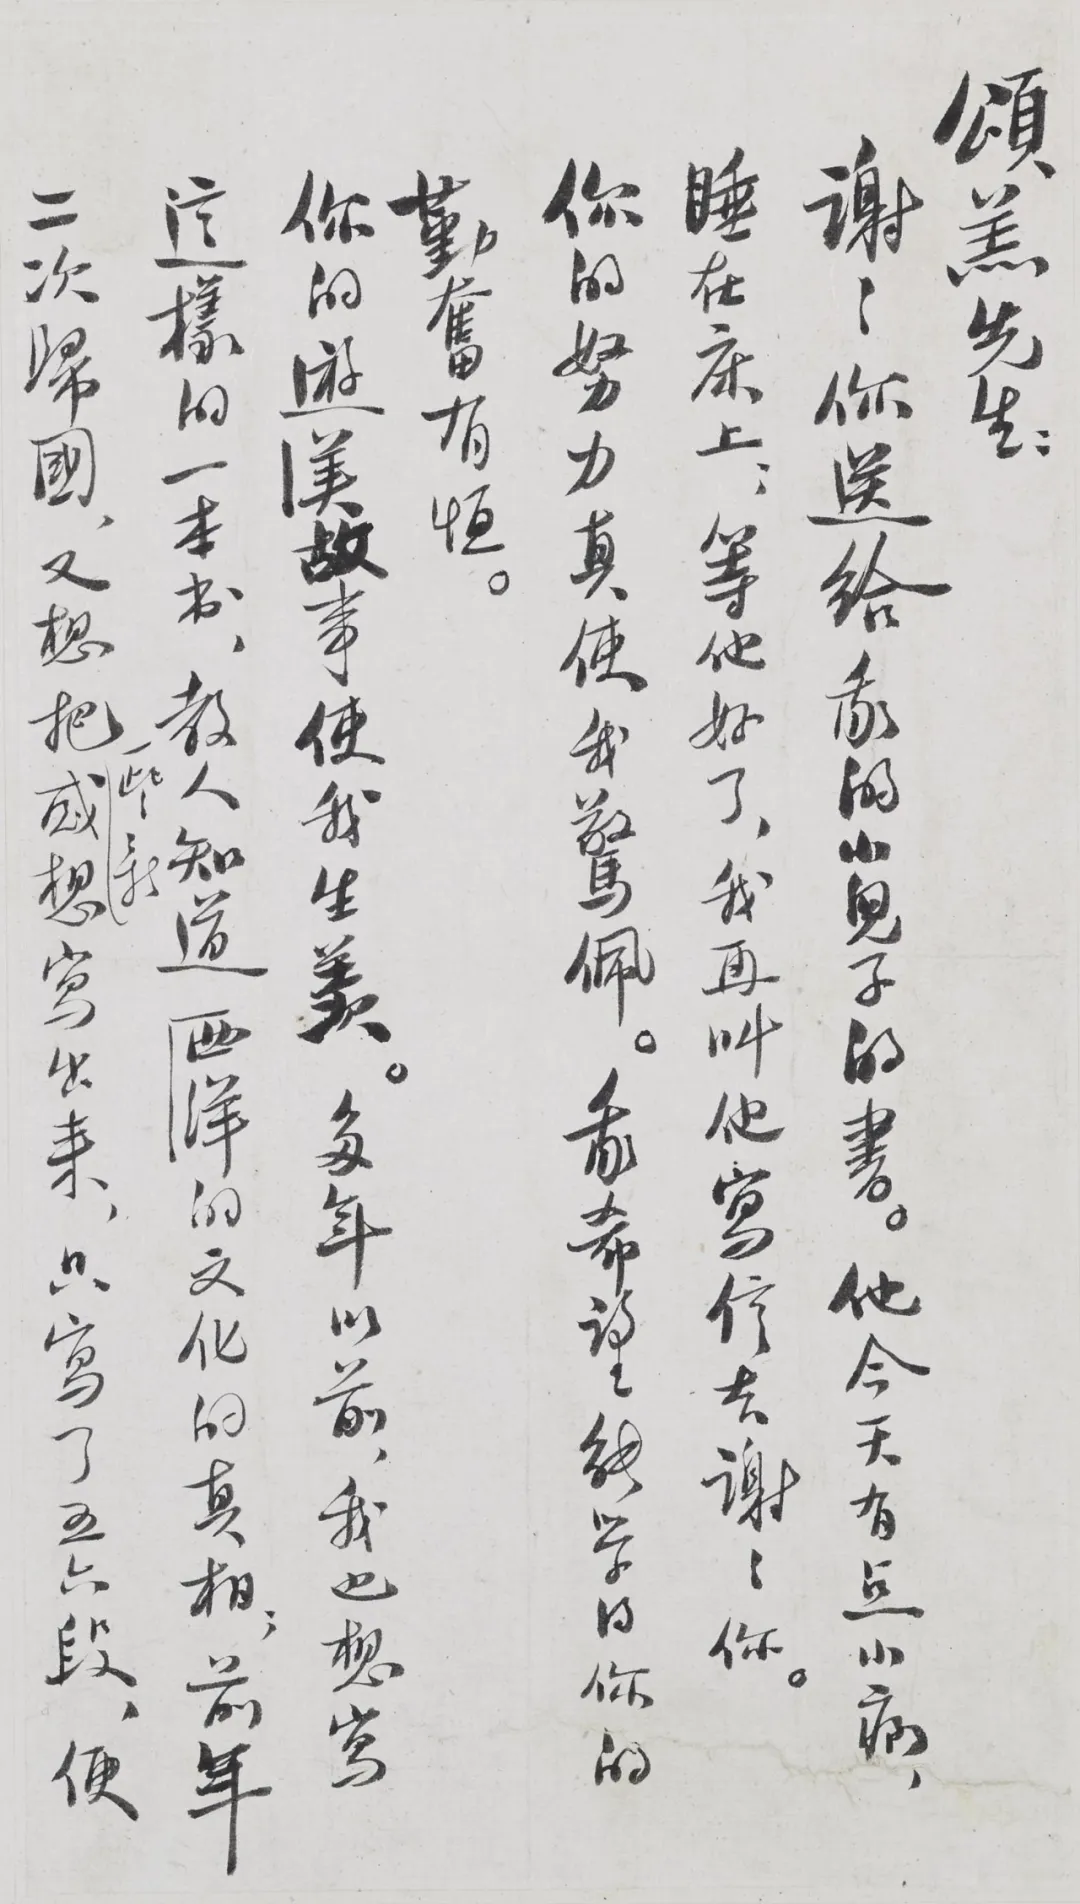 頌羔先生：
謝〻你送給我的小兒子的書。他今天有点小病，
睡在床上；等他好了，我再叫他寫信去謝〻你。
你的努力真使我驚佩。我希望能学得你的
勤奮有恒。
你的遊美故事使我生羨。多年以前，我也想寫
這樣的一本书，教人知道西洋的文化的真相；前年
二次歸國，又想把一些新感想寫出来，只寫了五六段，便